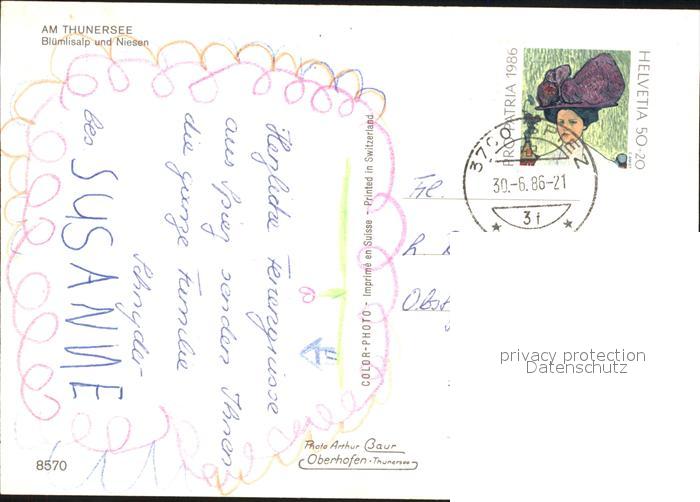 AM THUNERSEE
Blümlisalp und Niesen
PRO PATRIA 1986
HELVETIA 50+20
3700 SPIEZ
30.-6.86-21
3f
Herzliche Feriengrüsse
aus Spiez senden Ihnen
die ganze Familie
Schnyder
bes SUSANNE
Frl.
COLOR-PHOTO - Imprimé en Suisse - Printed in Switzerland
privacy protection
Datenschutz
Photo Arthur Baur
Oberhofen-Thunersee
8570